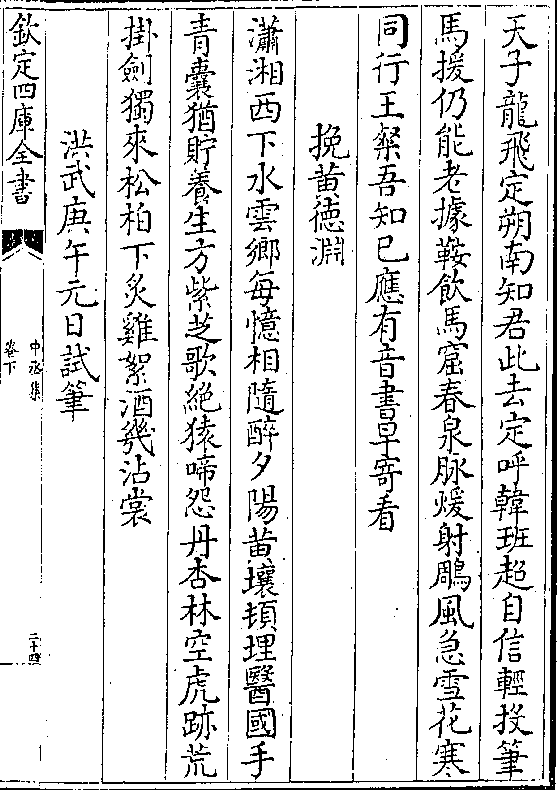 天子龍飛定朔南知君此去定呼韓班超自信輕投筆
馬援仍能老據鞍飲馬窟春泉脉煖射鵰風急雪花寒
同行王粲吾知已應有音書早寄看
挽黄徳淵
瀟湘西下水雲鄉每憶相隨醉夕陽黄壤頓埋醫國手
青囊猶貯養生方紫芝歌絕猿啼怨丹杏林空虎跡荒
掛劍獨來松柏下炙雞絮酒幾沾裳
洪武庚午元日試筆
欽定四庫全書
中丞集
卷下
二十四